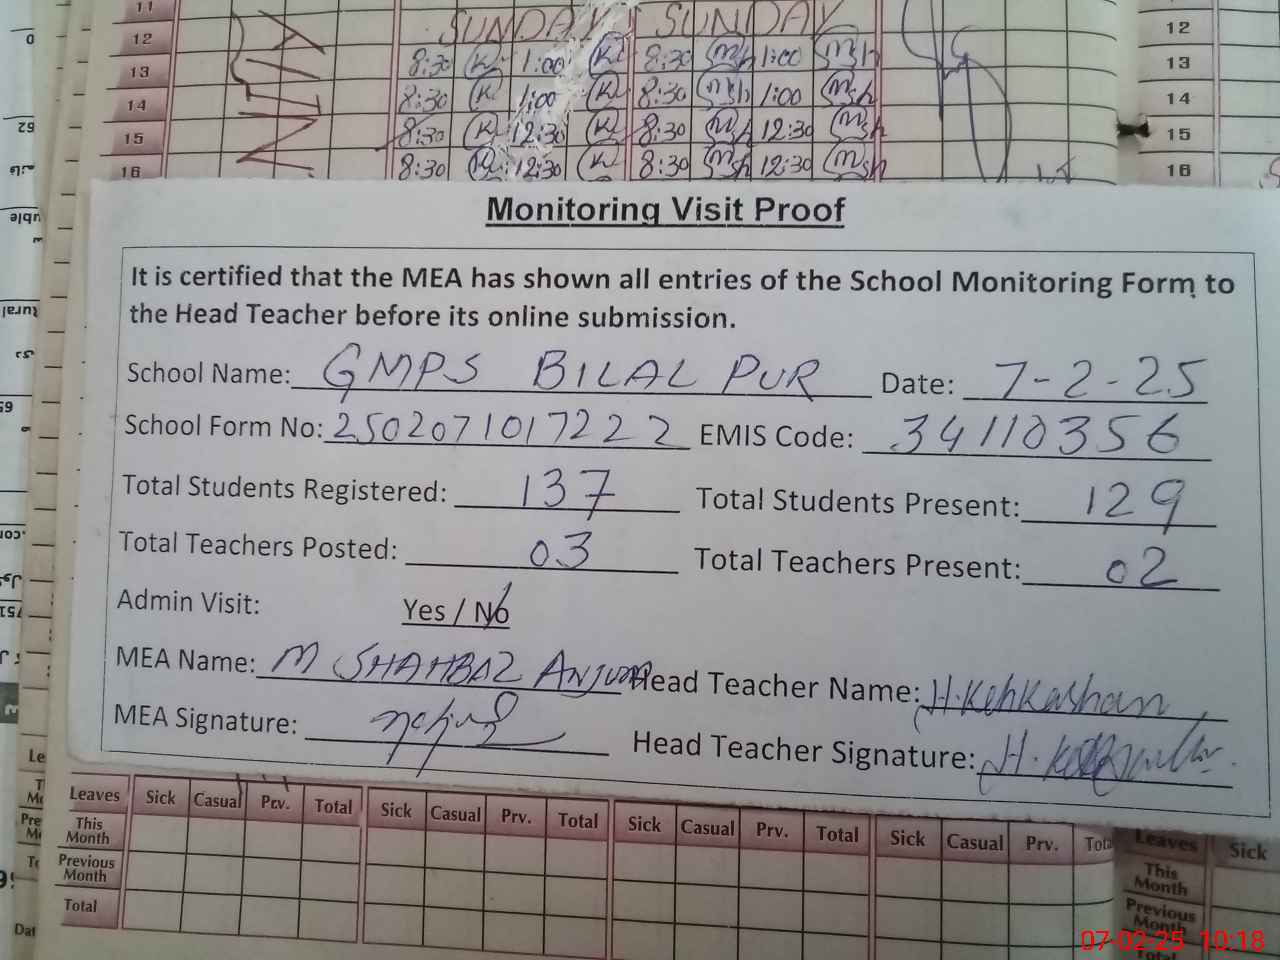 11
12 SUNDAY SUNDAY 12
13 8:30 K 1:00 K 8:30 Msh 1:00 Msh 13
14 8:30 K 1:00 K 8:30 Msh 1:00 Msh 14
15 8:30 K 12:30 K 8:30 Msh 12:30 Msh 15
16 8:30 K 12:30 K 8:30 Msh 12:30 Msh 16
Monitoring Visit Proof
It is certified that the MEA has shown all entries of the School Monitoring Form to
the Head Teacher before its online submission.
School Name: GMPS BILAL PUR Date: 7-2-25
School Form No: 2502071017222 EMIS Code: 34110356
Total Students Registered: 137 Total Students Present: 129
Total Teachers Posted: 03 Total Teachers Present: 02
Admin Visit: Yes / No
MEA Name: M SHAHBAZ ANJUM Head Teacher Name: H.Kehkashan
MEA Signature: Head Teacher Signature:
Leaves Sick Casual Prv. Total Sick Casual Prv. Total Sick Casual Prv. Total Sick Casual Prv. Leaves Sick
This Month This Month
Previous Month Previous Month
Total Total
07-02-25 10:18